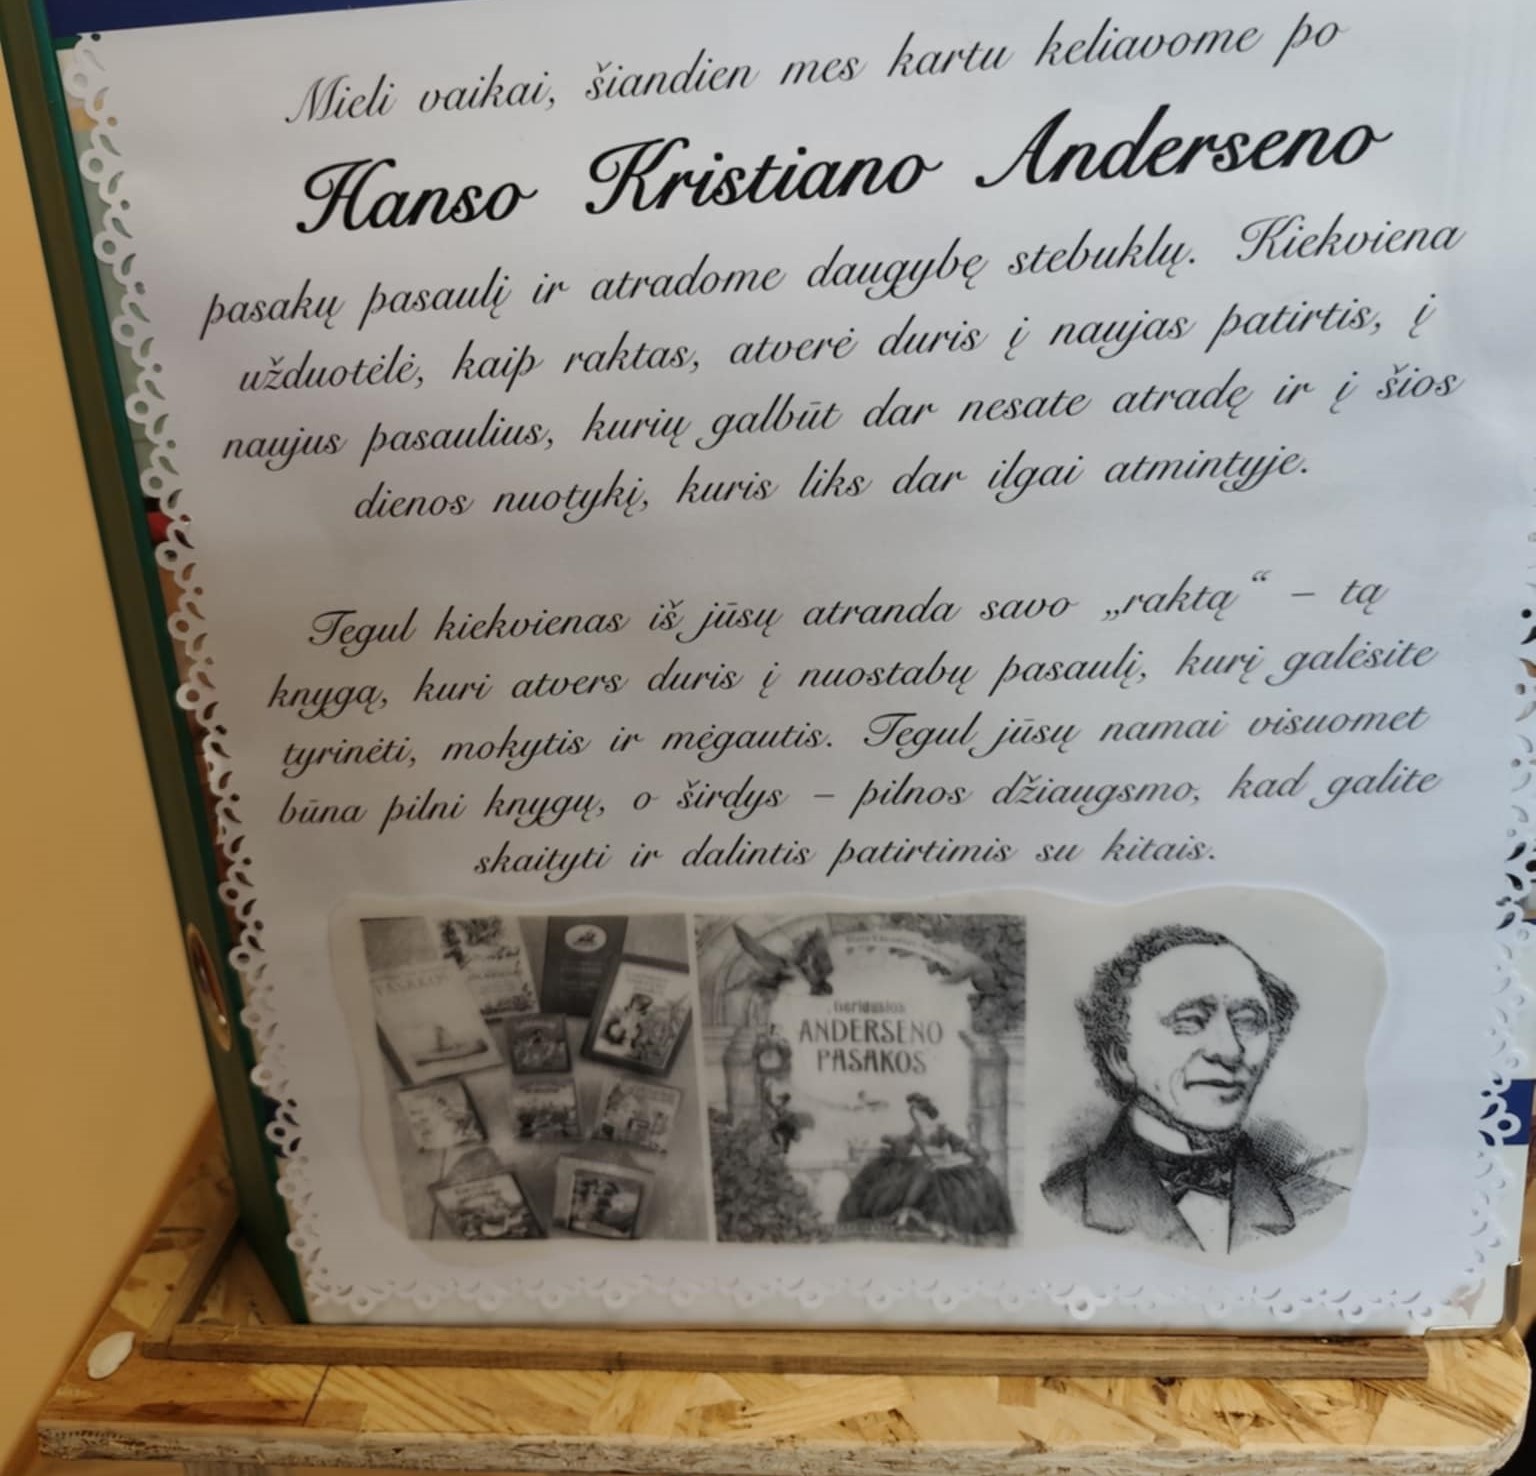 Mieli vaikai, šiandien mes kartu keliavome po
Hanso Kristiano Anderseno
pasakų pasaulį ir atradome daugybę stebuklų. Kiekviena
užduotėlė, kaip raktas, atvėrė duris į naujas patirtis, į
naujus pasaulius, kurių galbūt dar nesate atradę ir į šios
dienos nuotykį, kuris liks dar ilgai atmintyje.
Tegul kiekvienas iš jūsų atranda savo „raktą“ – tą
knygą, kuri atvers duris į nuostabų pasaulį, kurį galėsite
tyrinėti, mokytis ir mėgautis. Tegul jūsų namai visuomet
būna pilni knygų, o širdys – pilnos džiaugsmo, kad galite
skaityti ir dalintis patirtimis su kitais.
PASAKOS
Geriausios
ANDERSENO
PASAKOS